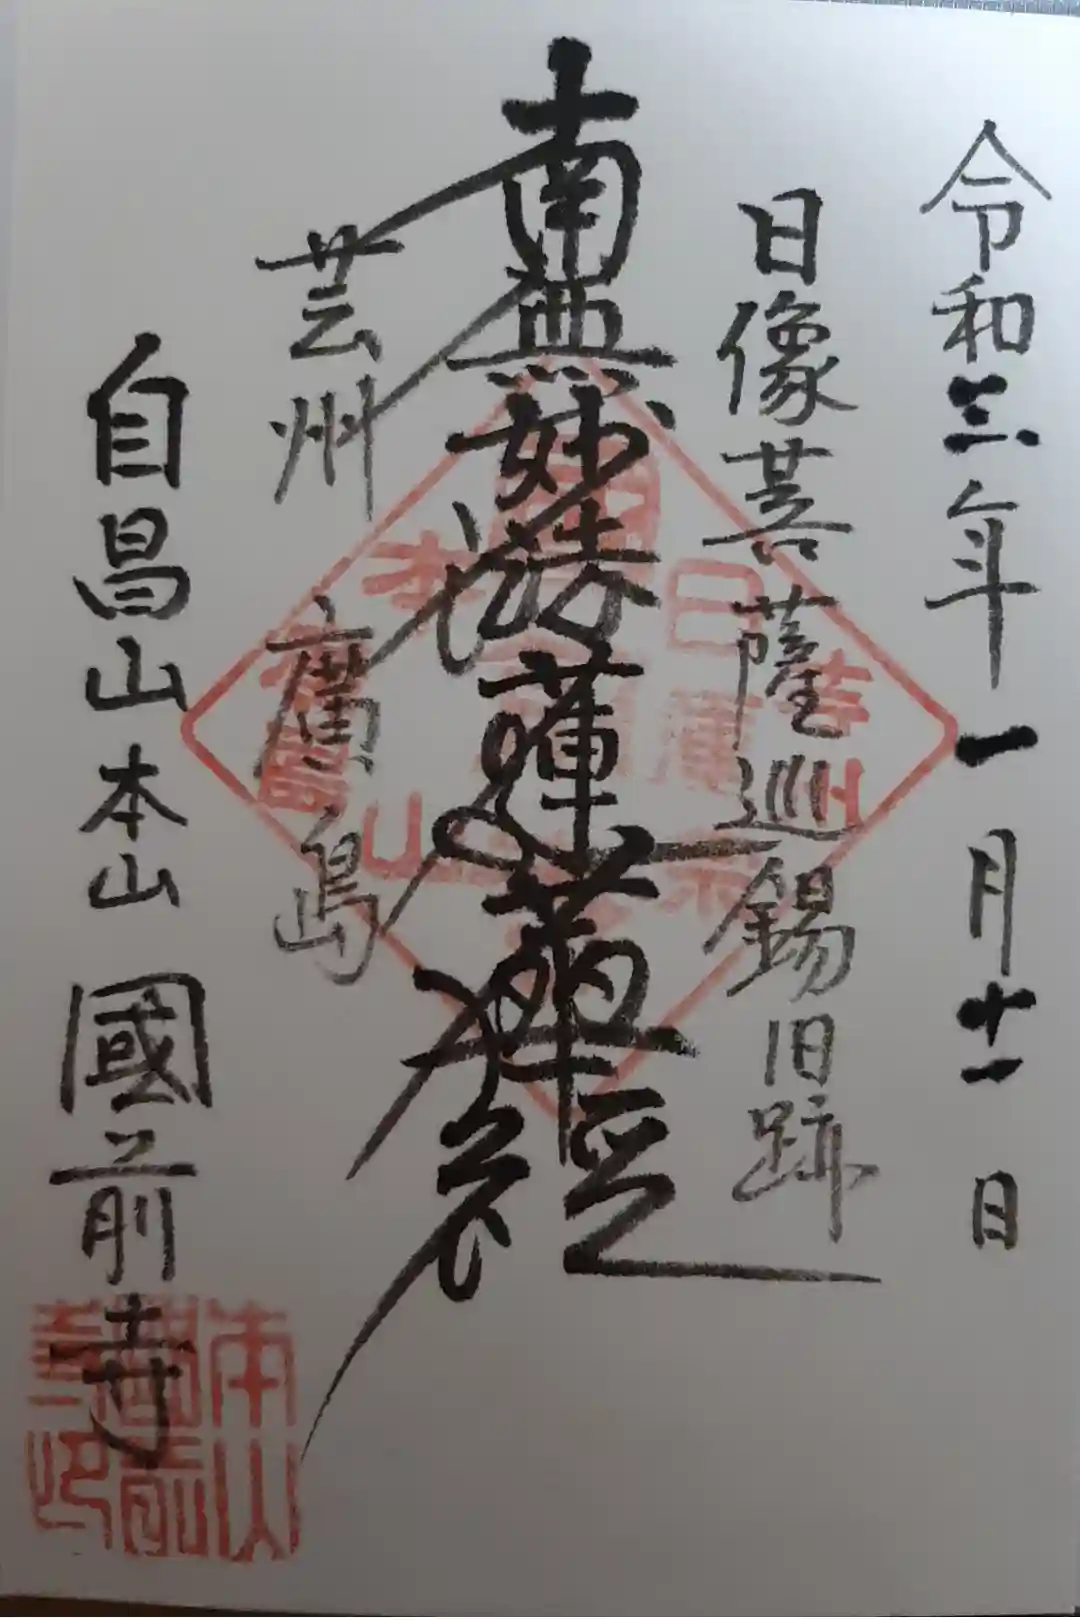 令和三年一月十一日
日像菩薩巡錫旧跡
南無妙法蓮華経
芸州 廣島
自昌山 本山 國前寺
本山
國前
寺印